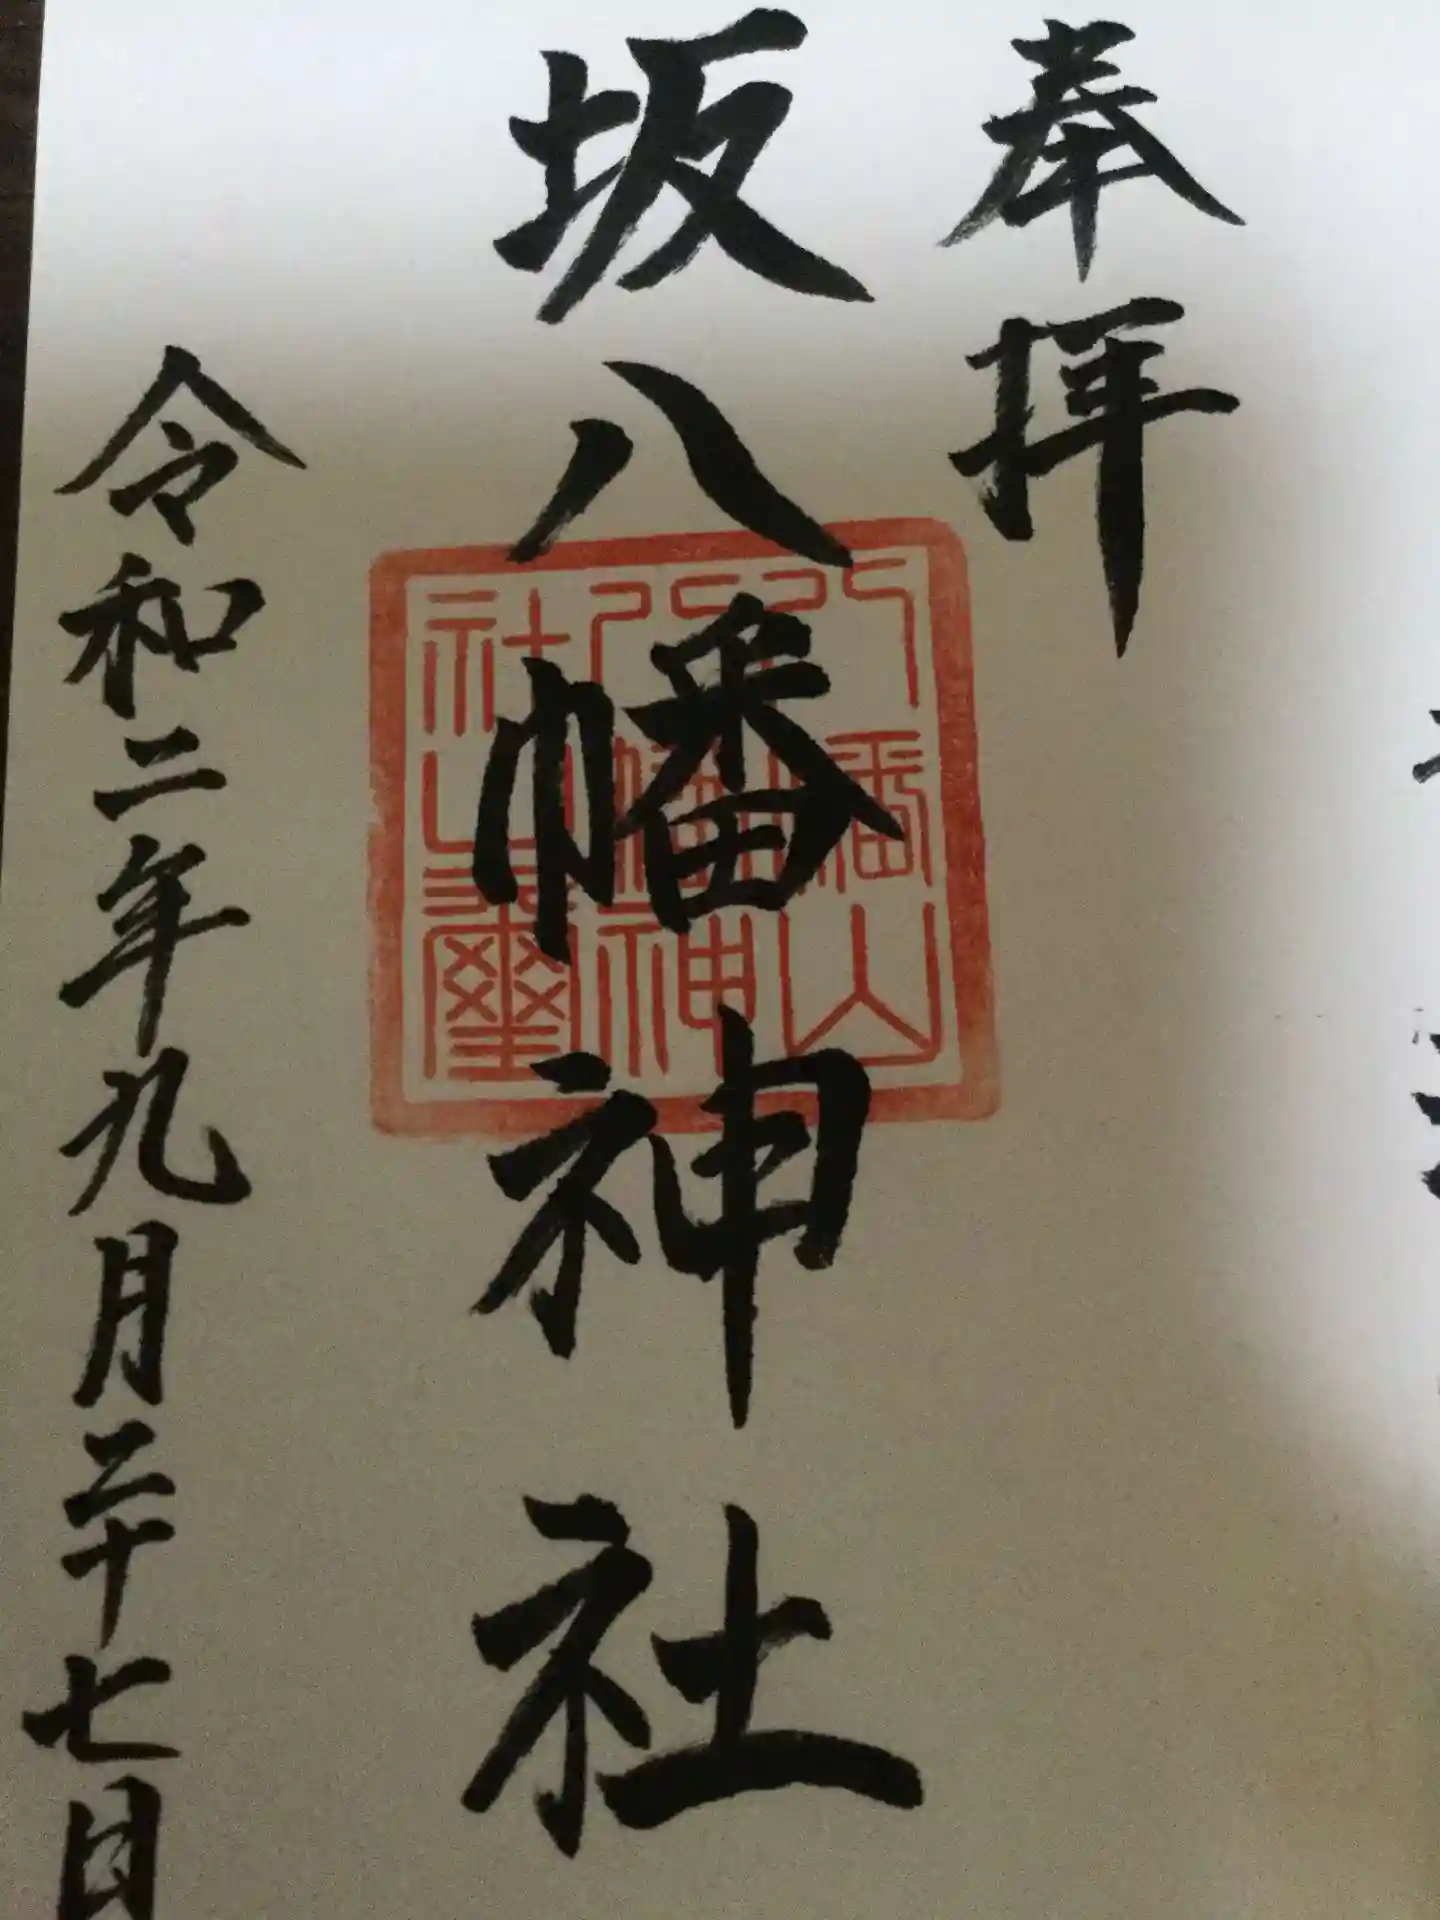 奉拝
坂八幡神社
八幡山
八幡神
社山璽
令和二年九月二十七日